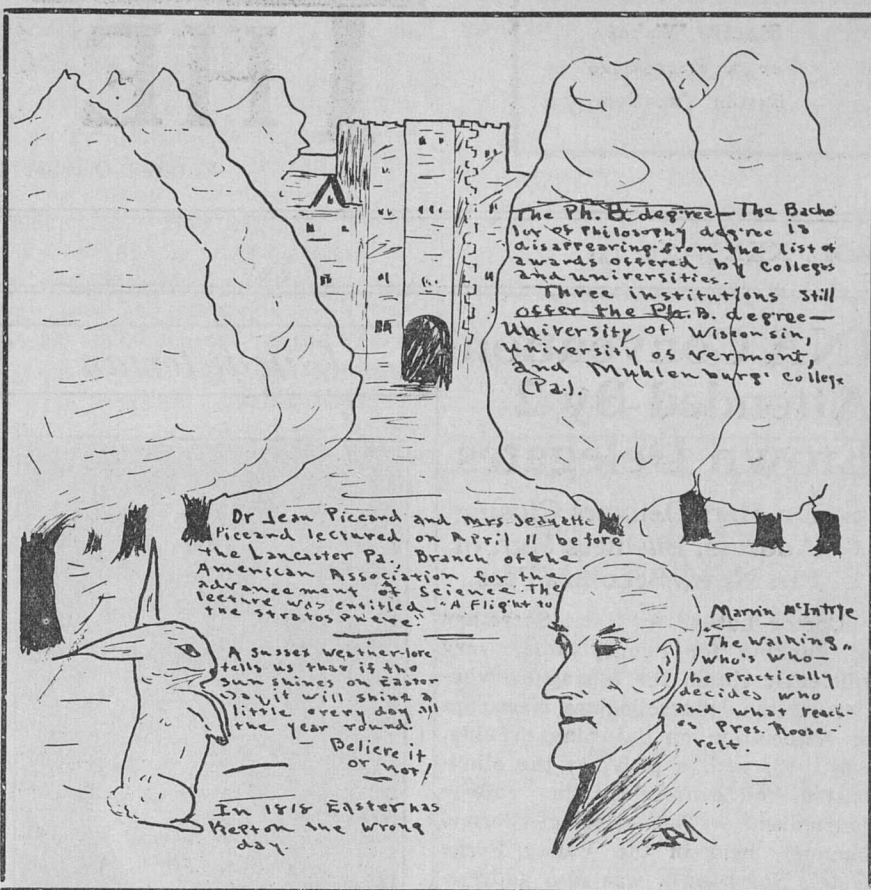 The Ph. B. degree— The Bacho
lor of Philosophy degree is
disappearing from the list of
awards offered by Colleges
and universities.
Three institutions still
offer the Ph. B. degree—
University of Wisconsin,
University of Vermont,
and Muhlenburg College
(Pa.).
Dr Jean Piccard and Mrs Jeanette
Piccard lectured on April 11 before
the Lancaster Pa. Branch of the
American Association for the
advancement of Science. The
lecture was entitled— "A Flight to
the Stratosphere"
A Sussex weather-lore
tells us that if the
sun shines on Easter
Day it will shine a
little every day all
the year round.
— Believe it
or not!
In 1818 Easter was
Kept on the wrong
day.
Marvin McIntyre
The Walking
Who's Who—
he Practically
decides who
and what reach-
es Pres. Roose-
velt.